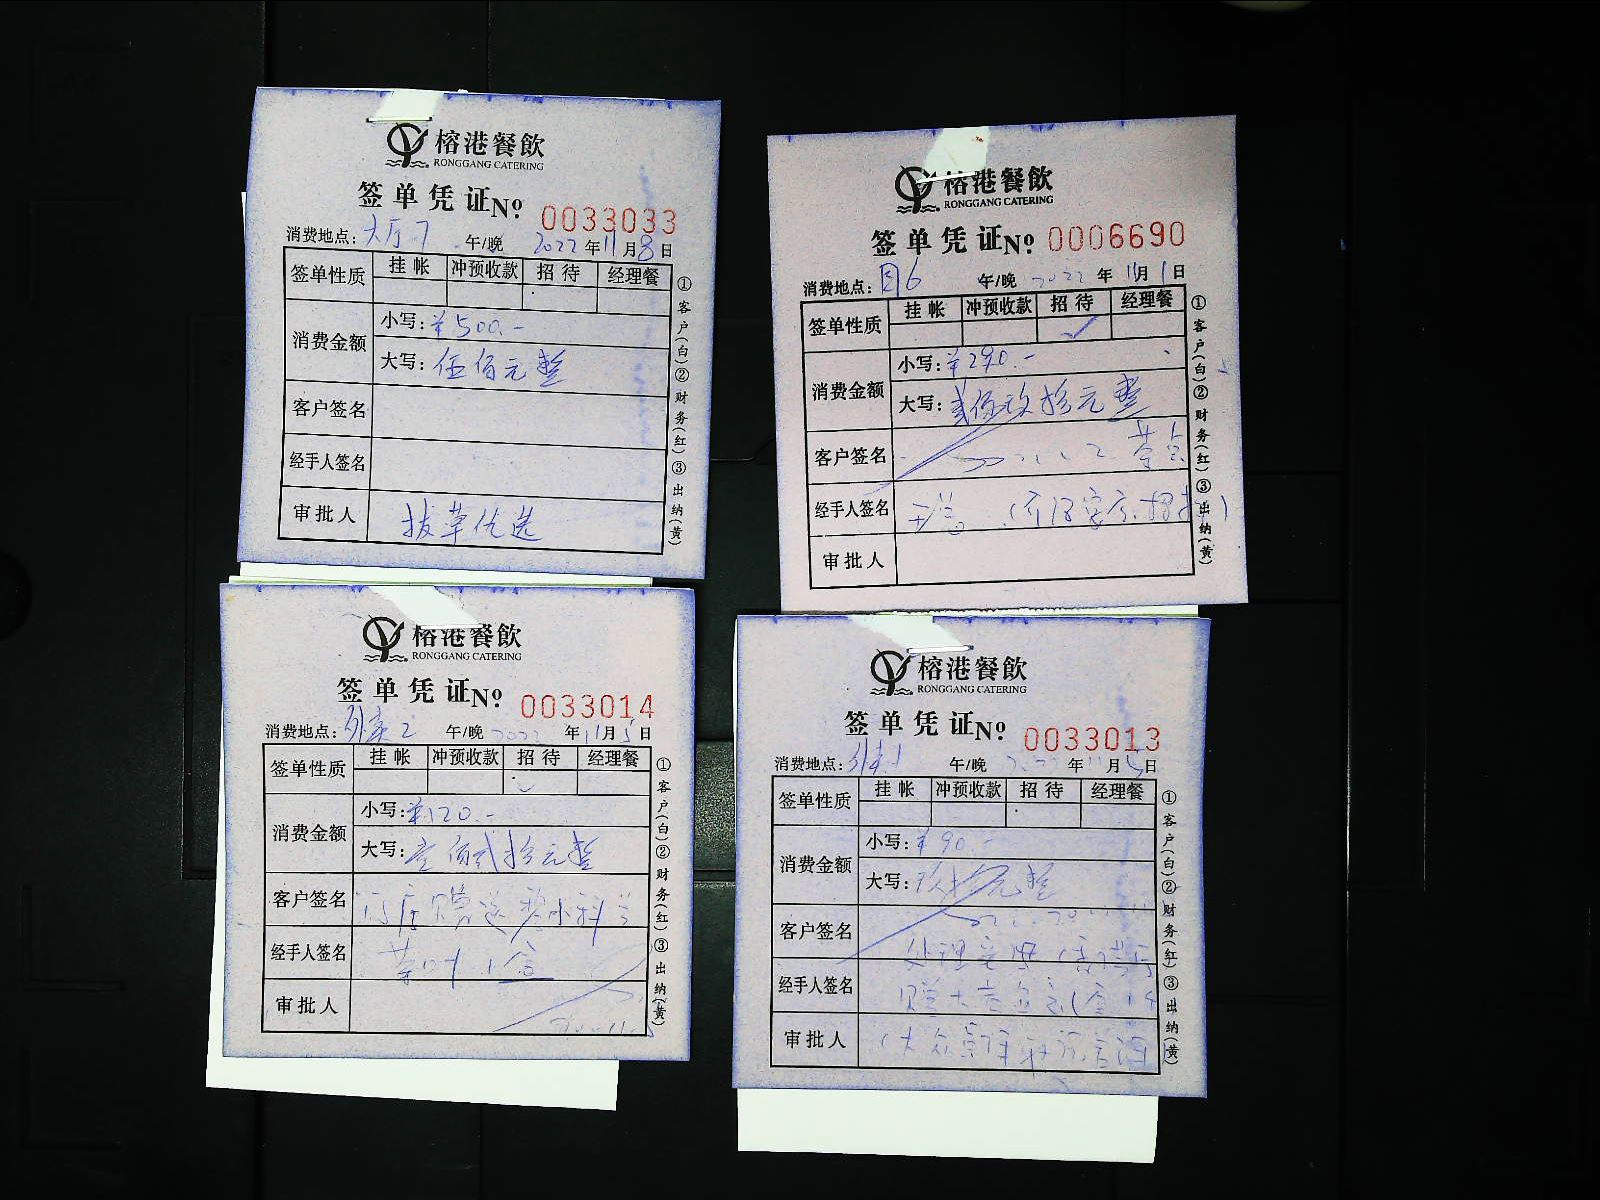 榕港餐飲
RONGGANG CATERING
签单凭证 No 0033033
消费地点：大厅7 午/晚 2022年11月8日
签单性质 挂帐 冲预收款 招待 经理餐
消费金额 小写：¥500.-
大写：伍佰元整
客户签名
经手人签名
审批人 拔草优选
①客户(白)②财务(红)③出纳(黄)
榕港餐飲
RONGGANG CATERING
签单凭证 No 0006690
消费地点： 午/晚 2022年11月1日
签单性质 挂帐 冲预收款 招待 经理餐
消费金额 小写：¥290.-
大写：贰佰玖拾元整
客户签名
经手人签名
审批人
①客户(白)②财务(红)③出纳(黄)
榕港餐飲
RONGGANG CATERING
签单凭证 No 0033014
消费地点：外卖2 午/晚 2022年11月5日
签单性质 挂帐 冲预收款 招待 经理餐
消费金额 小写：¥120.-
大写：壹佰贰拾元整
客户签名
经手人签名 茶叶1盒
审批人
①客户(白)②财务(红)③出纳(黄)
榕港餐飲
RONGGANG CATERING
签单凭证 No 0033013
消费地点：外卖1 午/晚 2022年11月5日
签单性质 挂帐 冲预收款 招待 经理餐
消费金额 小写：¥90.-
大写：玖拾元整
客户签名
经手人签名
审批人
①客户(白)②财务(红)③出纳(黄)